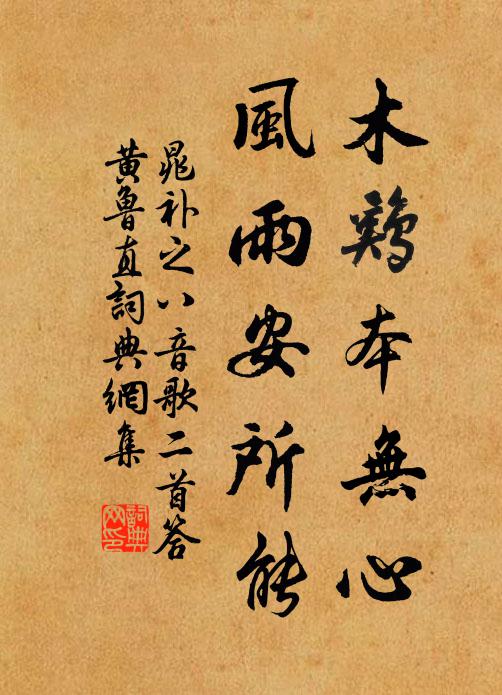 木鷄本無心
風雨安所能
晁补之八音歌二首答
黄魯直詞典網集
詞典
网印